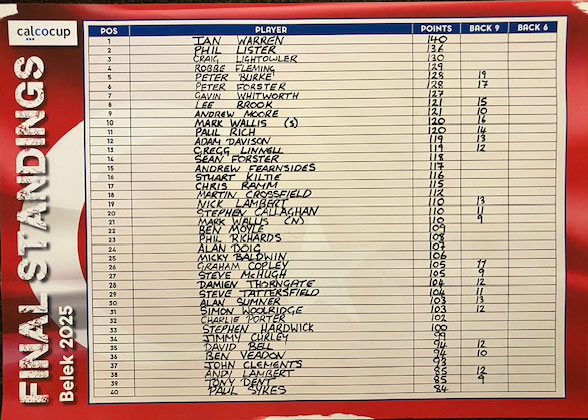 calcocup
FINAL STANDINGS
Belek 2025
POS PLAYER POINTS BACK 9 BACK 6
1 IAN WARREN 140
2 PHIL LISTER 136
3 CRAIG LIGHTOWLER 130
4 ROBBE FLEMING 129
5 PETER BURKE 128 19
6 PETER FORSTER 128 17
7 GAVIN WHITWORTH 127
8 LEE BROOK 121 15
9 ANDREW MOORE 121 10
10 MARK WALLIS (S) 120 16
11 PAUL RICH 120 14
12 ADAM DAVISON 119 13
13 GREGG LINNELL 119 12
14 SEAN FORSTER 118
15 ANDREW FEARNSIDES 117
16 STUART KILTIE 116
17 CHRIS RAMM 115
18 MARTIN CROSSFIELD 112
19 NICK LAMBERT 110 13
20 STEPHEN CALLAGHAN 110 11
21 MARK WALLIS (N) 110 9
22 BEN MOYLE 109
23 PHIL RICHARDS 108
24 ALAN DOIG 107
25 MICKY BALDWIN 106
26 GRAHAM COPLEY 105 11
27 STEVE McHUGH 105 9
28 DAMIEN THORNGATE 104 12
29 STEVE TATTERSFIELD 104 11
30 ALAN SUMNER 103 13
31 SIMON WOOLRIDGE 103 12
32 CHARLIE PORTER 102
33 STEPHEN HARDWICK 100
34 JIMMY CURLEY 99
35 DAVID BELL 94 12
36 BEN VEADON 94 10
37 JOHN CLEMENTS 93
38 ANDI LAMBERT 85 12
39 TONY DENT 85 9
40 PAUL SYKES 84